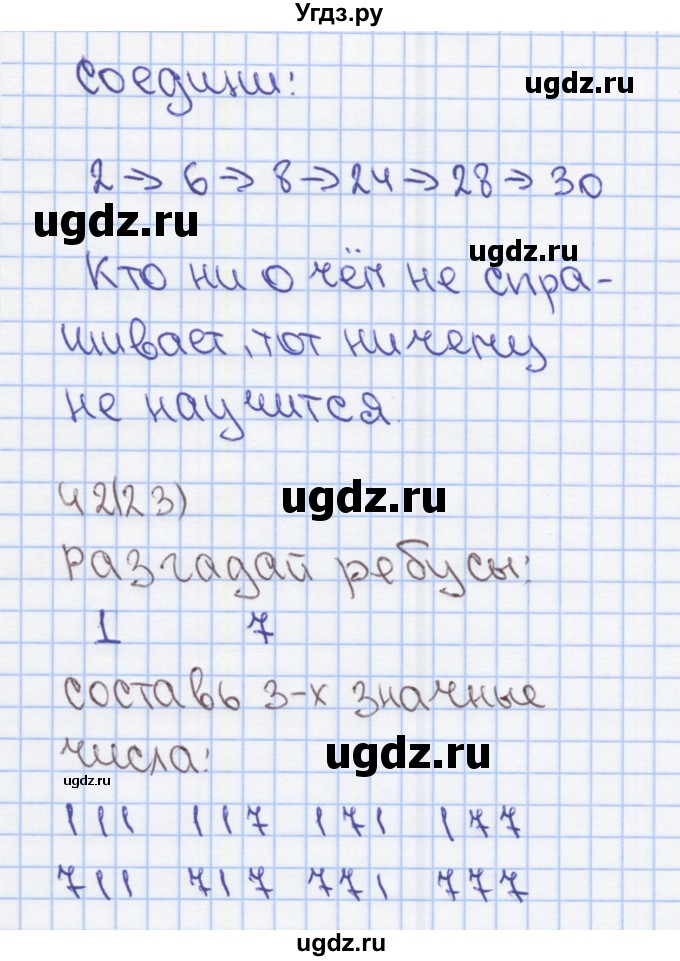 Угдз.ру
Соедини:
ugdz.ru
2 → 6 → 8 → 24 → 28 → 30
ugdz.ru
ugdz.ru
Кто ни о чём не спра-
шивает, тот ничему
не научится.
42(23)
ugdz.ru
Разгадай ребусы:
1 7
составь 3-х значные
числа:
ugdz.ru
ugdz.ru
111 117 171 177
711 717 771 777
ugdz.ru